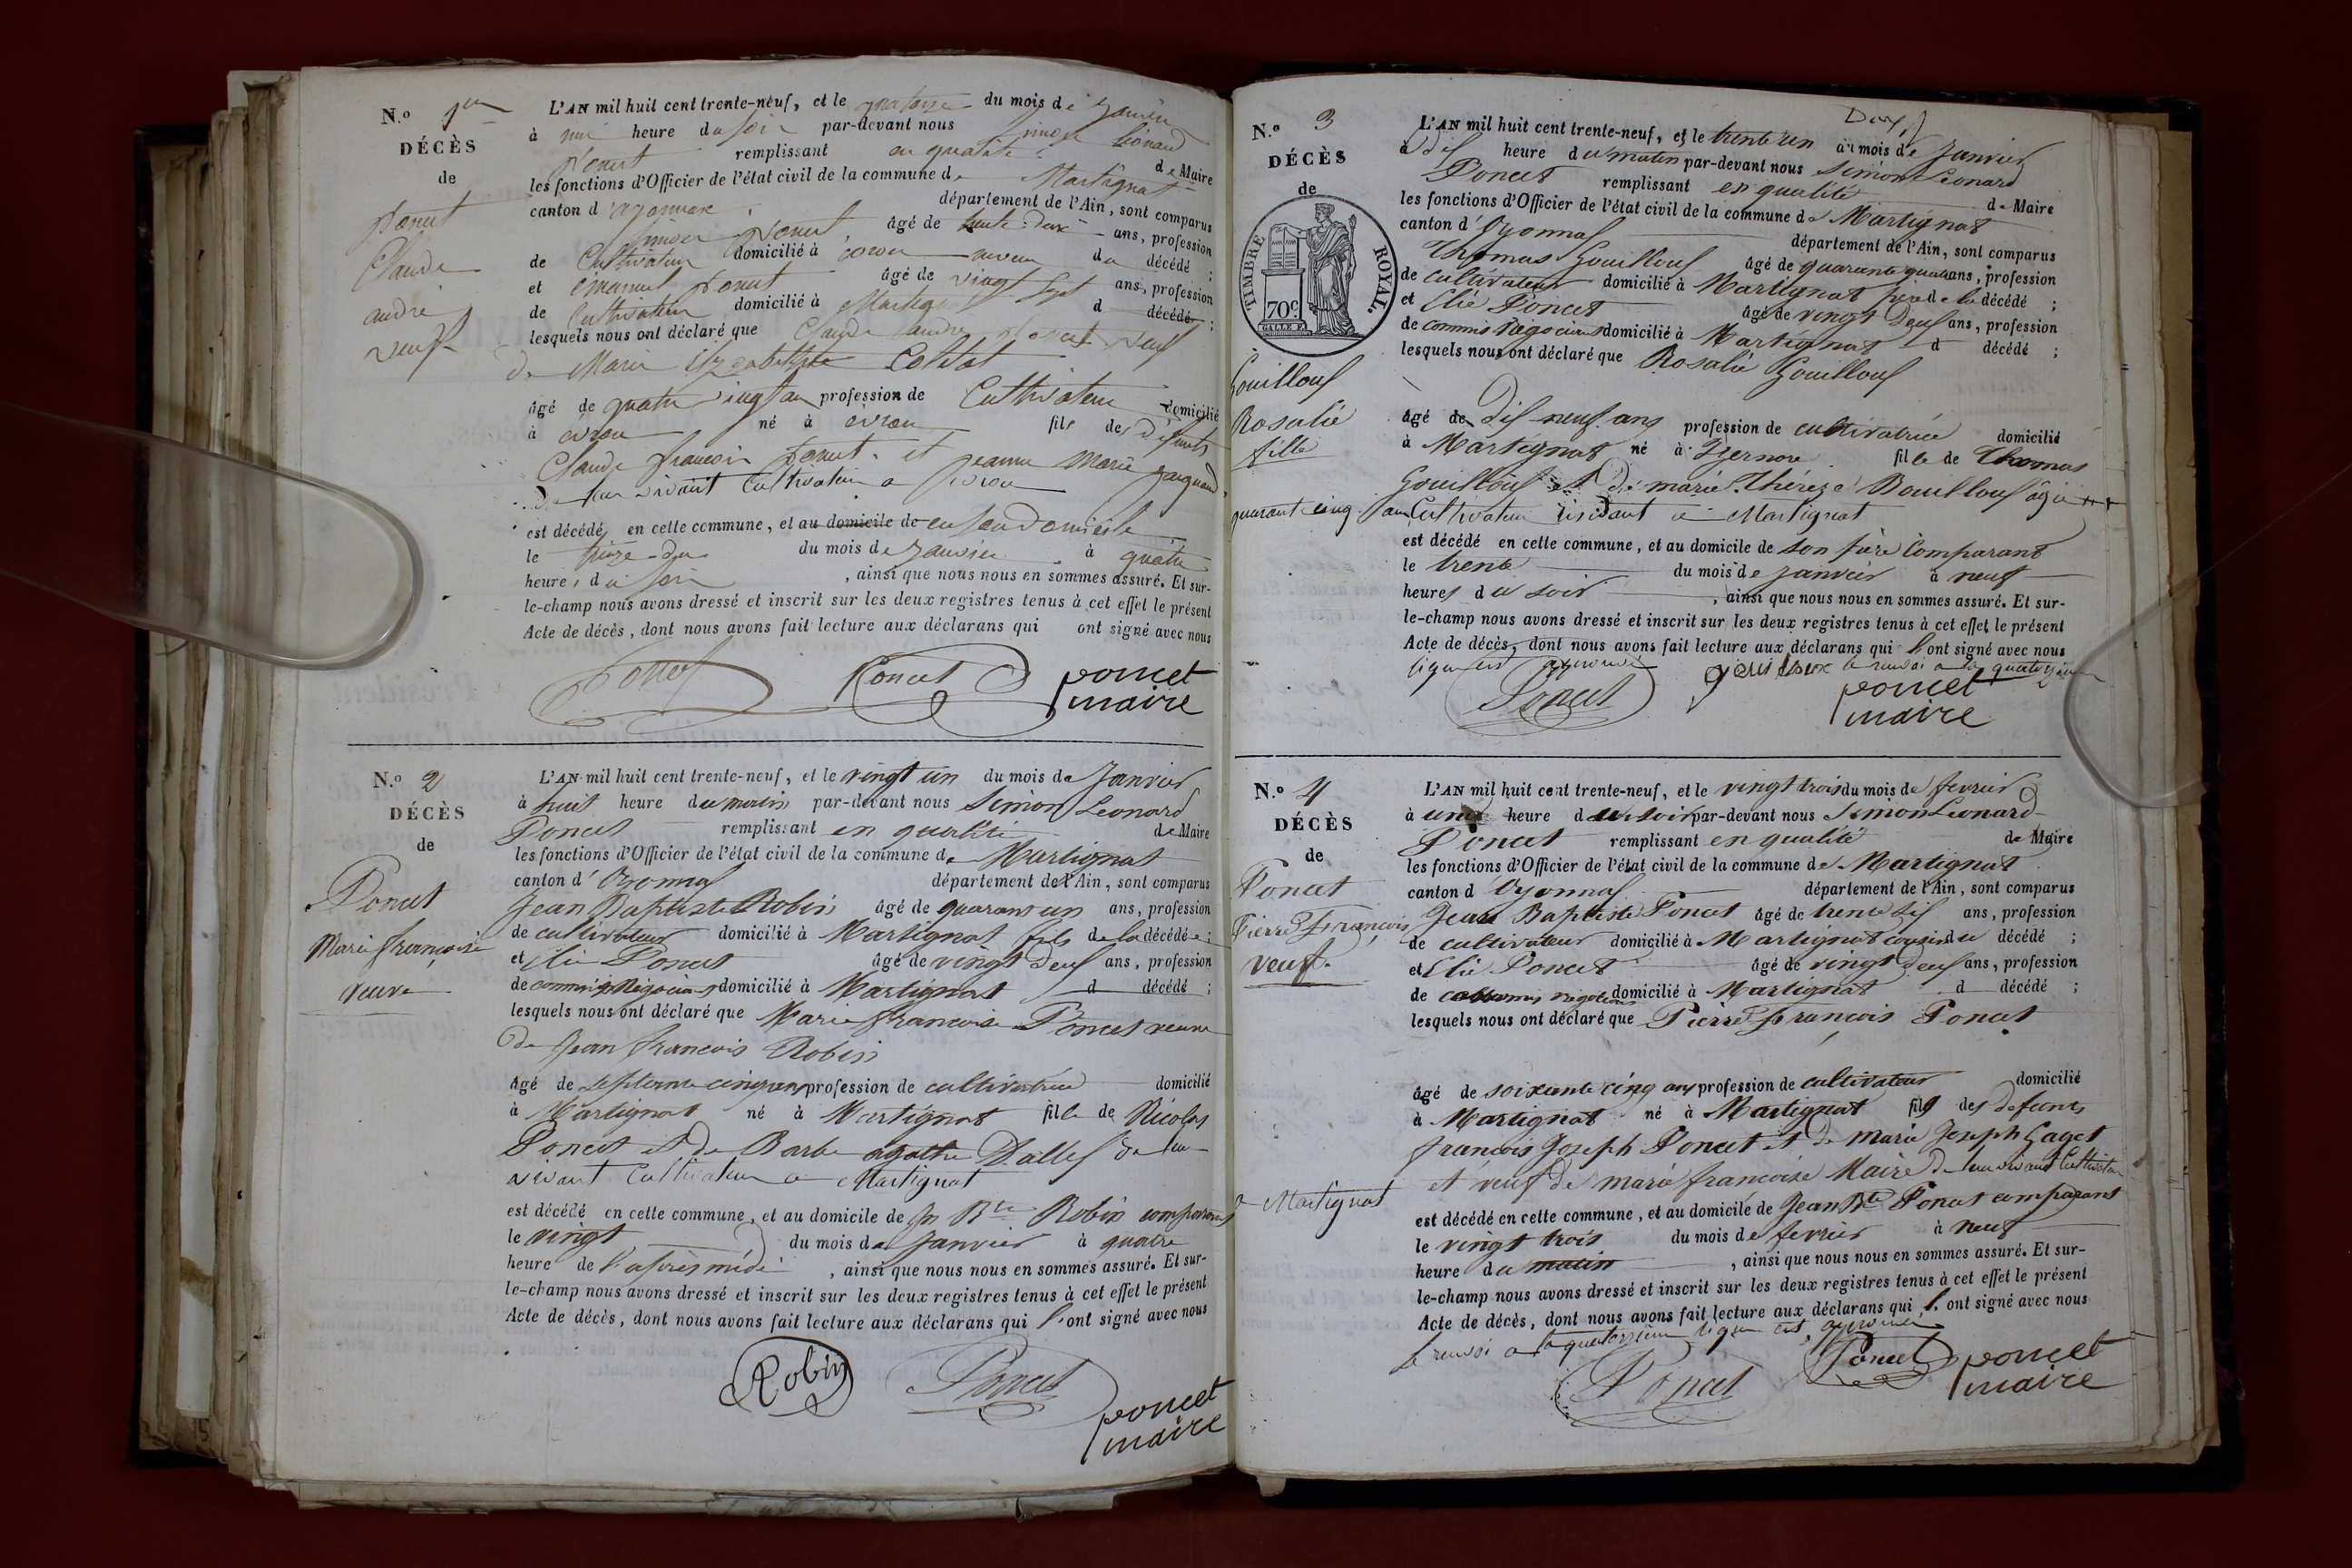 N.o 1er
DÉCÈS
de
Poncet
Claude
andré
veuf
L'AN mil huit cent trente-neuf, et le quatorze du mois de janvier
à une heure du soir par-devant nous simon léonard
Poncet remplissant en qualité de Maire
les fonctions d'Officier de l'état civil de la commune de Martignat
canton d'oyonnax département de l'Ain, sont comparus
Poncet âgé de trente deux ans, profession
de Cultivateur domicilié à évron neveu du décédé ;
et Poncet âgé de vingt sept ans, profession
de Cultivateur domicilié à Martignat d décédé ;
lesquels nous ont déclaré que Claude andre Poncet veuf
de Marie
âgé de quatre vingt an profession de Cultivateur domicilié
à évron né à évron fils des défunts
Claude francois Poncet et jeanne Marie
de leur vivant Cultivateur a évron
est décédé en cette commune, et au domicile de en son Domicile
le treize du du mois de janvier à quatre
heure, du soir, ainsi que nous nous en sommes assuré. Et sur-
le-champ nous avons dressé et inscrit sur les deux registres tenus à cet effet le présent
Acte de décès, dont nous avons fait lecture aux déclarans qui ont signé avec nous
Poncet Poncet poncet
maire
N.o 2
DÉCÈS
de
Poncet
Marie françoise
veuve
L'AN mil huit cent trente-neuf, et le vingt un du mois de Janvier
à huit heure du matin par-devant nous Simon Leonard
Poncet remplissant en qualité de Maire
les fonctions d'Officier de l'état civil de la commune de Martignat
canton d'Oyonnax département de l'Ain, sont comparus
Jean Baptiste Robin âgé de quarante un ans, profession
de cultivateur domicilié à Martignat fils de la décédée ;
et Elie Poncet âgé de vingt deux ans, profession
de commis Négociant domicilié à Martignat d décédé ;
lesquels nous ont déclaré que Marie francoise Poncet veuve
de Jean francois Robin
âgé de septante cinq ans profession de cultivatrice domicilié
à Martignat né à Martignat fille de Nicolas
Poncet et de Barbe agathe Dallex de leur
vivant Cultivateur a Martignat
est décédé en cette commune, et au domicile de Jn Bte Robin comparant
le vingt du mois de Janvier à quatre
heure de l'après midi, ainsi que nous nous en sommes assuré. Et sur-
le-champ nous avons dressé et inscrit sur les deux registres tenus à cet effet le présent
Acte de décès, dont nous avons fait lecture aux déclarans qui l'ont signé avec nous
Robin Poncet poncet
maire
Deux
N.o 3
DÉCÈS
de
TIMBRE ROYAL.
70c
Gouilloux
Rosalie
fille
L'AN mil huit cent trente-neuf, et le trente un du mois de Janvier
à dix heure du matin par-devant nous Simon Leonard
Poncet remplissant en qualité de Maire
les fonctions d'Officier de l'état civil de la commune de Martignat
canton d'Oyonnax département de l'Ain, sont comparus
Thomas Gouilloux âgé de quarante quatre ans, profession
de cultivateur domicilié à Martignat père de la décédé ;
et Elie Poncet âgé de vingt deux ans, profession
de commis Négociant domicilié à Martignat d décédé ;
lesquels nous ont déclaré que Rosalie Gouilloux
âgé de Dix neuf ans profession de cultivatrice domicilié
à Martignat né à Izernore fille de Thomas
Gouilloux et de marie Thérèze Bouilloux âgée
quarant cinq ans Cultivateur résidant a Martignat
est décédé en cette commune, et au domicile de son père Comparant
le trente du mois de janvier à neuf
heures du soir, ainsi que nous nous en sommes assuré. Et sur-
le-champ nous avons dressé et inscrit sur les deux registres tenus à cet effet le présent
Acte de décès, dont nous avons fait lecture aux déclarans qui l'ont signé avec nous
le renvoi a la quatorzieme
ligne est approuvé
Poncet gouilloux poncet
maire
N.o 4
DÉCÈS
de
Poncet
Pierre François
veuf.
L'AN mil huit cent trente-neuf, et le vingt trois du mois de fevrier
à une heure du soir par-devant nous Simon Leonard
Poncet remplissant en qualité de Maire
les fonctions d'Officier de l'état civil de la commune de Martignat
canton d'Oyonnax département de l'Ain, sont comparus
Jean Baptiste Poncet âgé de trente six ans, profession
de cultivateur domicilié à Martignat cousin du décédé ;
et Elie Poncet âgé de vingt deux ans, profession
de commis négotiant domicilié à Martignat d décédé ;
lesquels nous ont déclaré que Pierre francois Poncet
âgé de soixante cinq ans profession de cultivateur domicilié
à Martignat né à Martignat fils des defunts
francois Joseph Poncet et de marie Joseph Gaget
et veuf de marie françoise Maire de leur vivant Cultivateur
a Martignat
est décédé en cette commune, et au domicile de Jean Bte Poncet comparant
le vingt trois du mois de fevrier à neuf
heure du matin, ainsi que nous nous en sommes assuré. Et sur-
le-champ nous avons dressé et inscrit sur les deux registres tenus à cet effet le présent
Acte de décès, dont nous avons fait lecture aux déclarans qui l'ont signé avec nous
le renvoi a la quatorzieme ligne est approuvé
Poncet Poncet poncet
maire